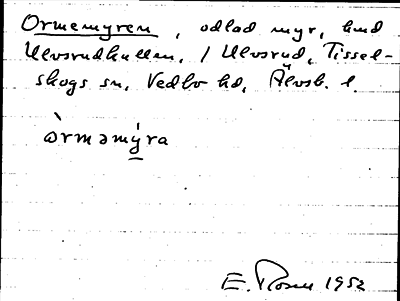 Ormemyren, odlad myr, hmd
Ulvsrudkullen, / Ulvsrud, Tissel-
skogs sn, Vedbo hd, Älvsb. l.
òrməmýra
E. Rosu 1952